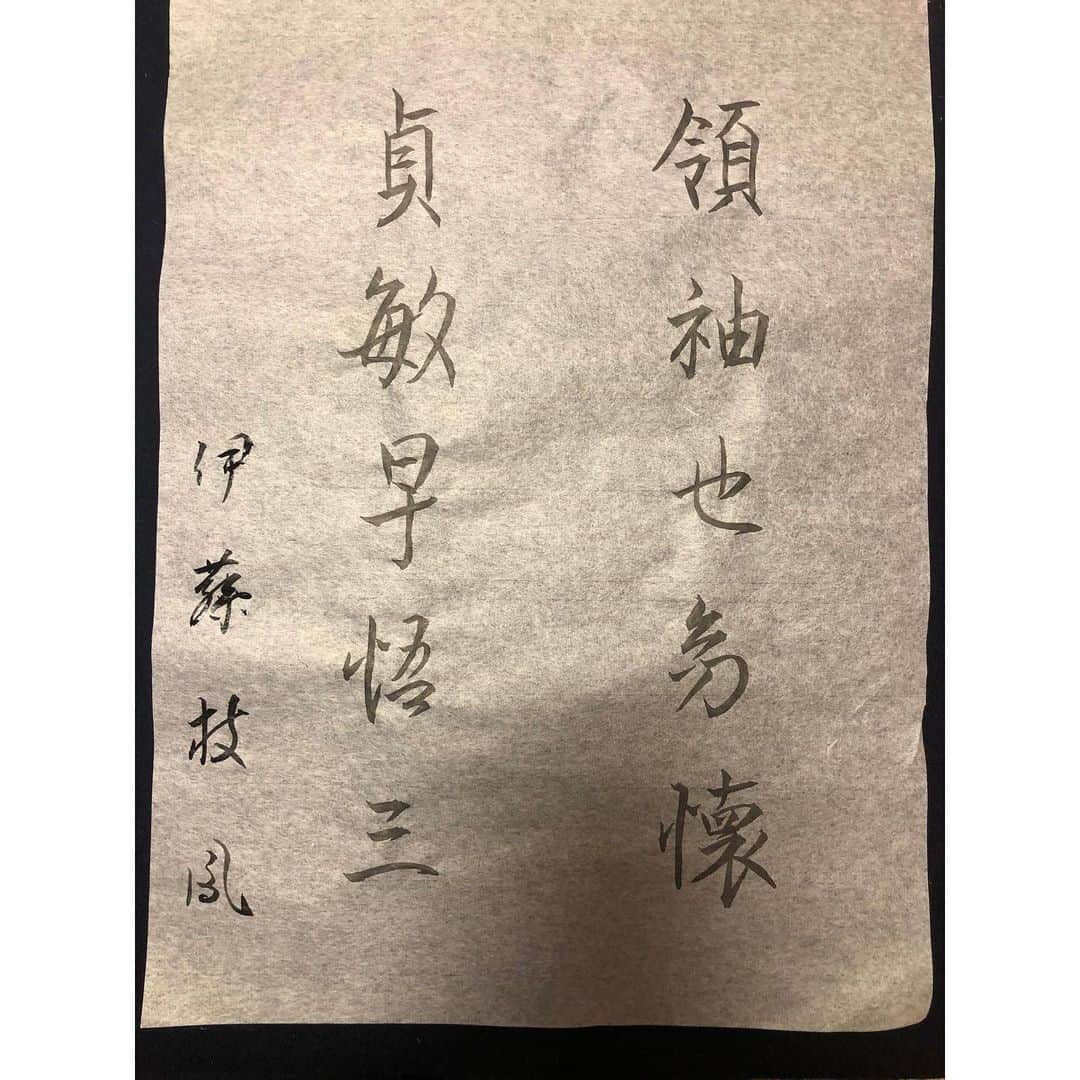 領袖也幼懐
貞敏早悟三
伊藤枝凰